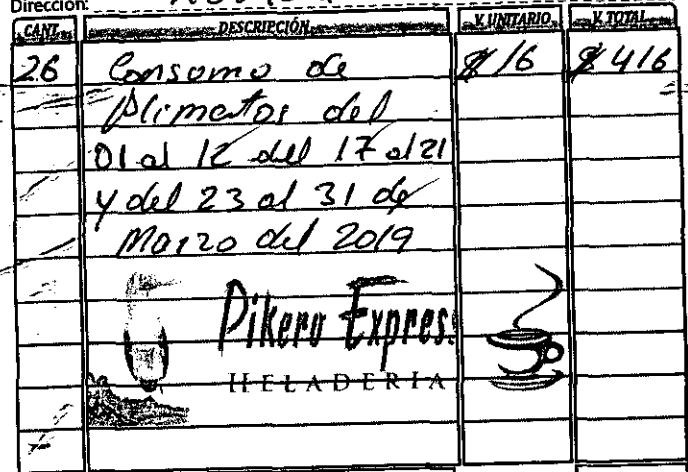 Dirección:
CANT. DESCRIPCIÓN V. UNITARIO V. TOTAL
26 Consumo de $16 $416
Alimentos del
01 al 12 del 17 al 21
y del 23 al 31 de
Marzo del 2019
Pikero Expres.
HELADERIA